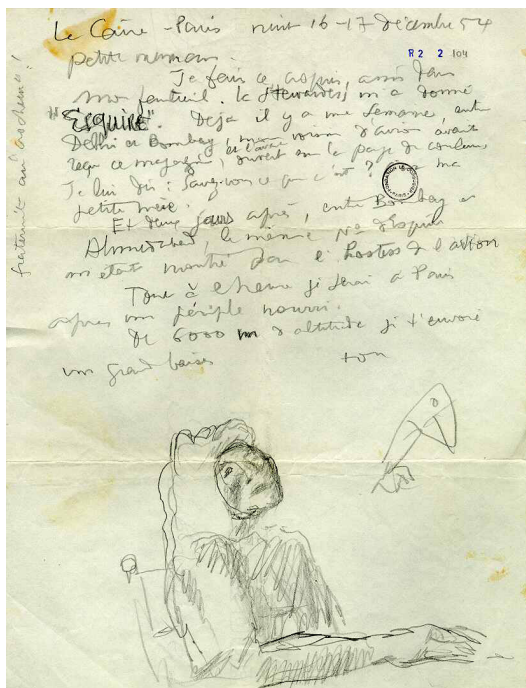 Le Caire – Paris nuit 16-17 décembre 54
R2 2 104
petite maman.
Je fais ce croquis, assis dans
mon fauteuil. la Stewardess m'a donné
"ESQUIRE". Déjà il y a une semaine, entre
Delhi et Bombay, mon voisin d'avion avait
reçu ce magazine, ouvert sur la page de couleurs
Je lui dis : Savez-vous ce que c'est ? ma
petite mère.
Et deux jours après, entre Bombay et
Ahmedabad, le même N° d'Esquire
m'était montré par l'hostess de l'avion
Tout à l'heure je serai à Paris
après un périple nourri.
De 6000 m d'altitude je t'envoie
un grand baiser
ton
fraternité